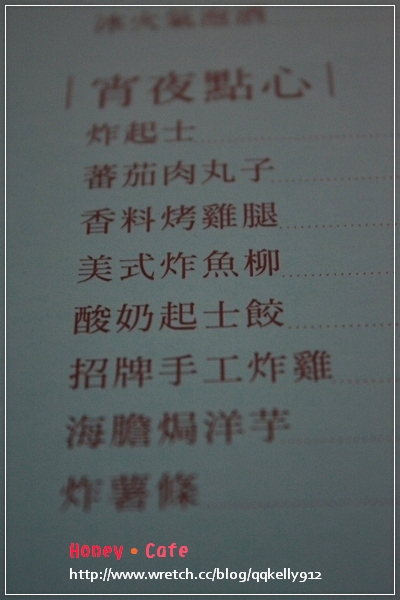 冰火氣泡酒
｜宵夜點心｜
炸起士
蕃茄肉丸子
香料烤雞腿
美式炸魚柳
酸奶起士餃
招牌手工炸雞
海膽焗洋芋
炸薯條
Honey • Cafe
http://www.wretch.cc/blog/qqkelly912